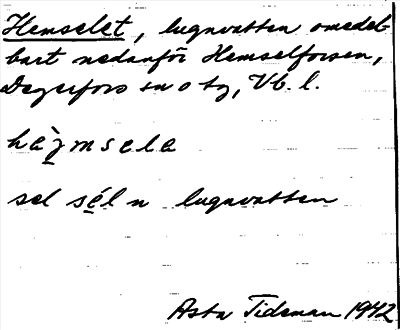 Hemselet, lugnvatten omedel-
bart nedanför Hemselforsen,
Degerfors sn o tg, Vb. l.
hæ̀msele
sel sél n lugnvatten
Asta Tideman 1942